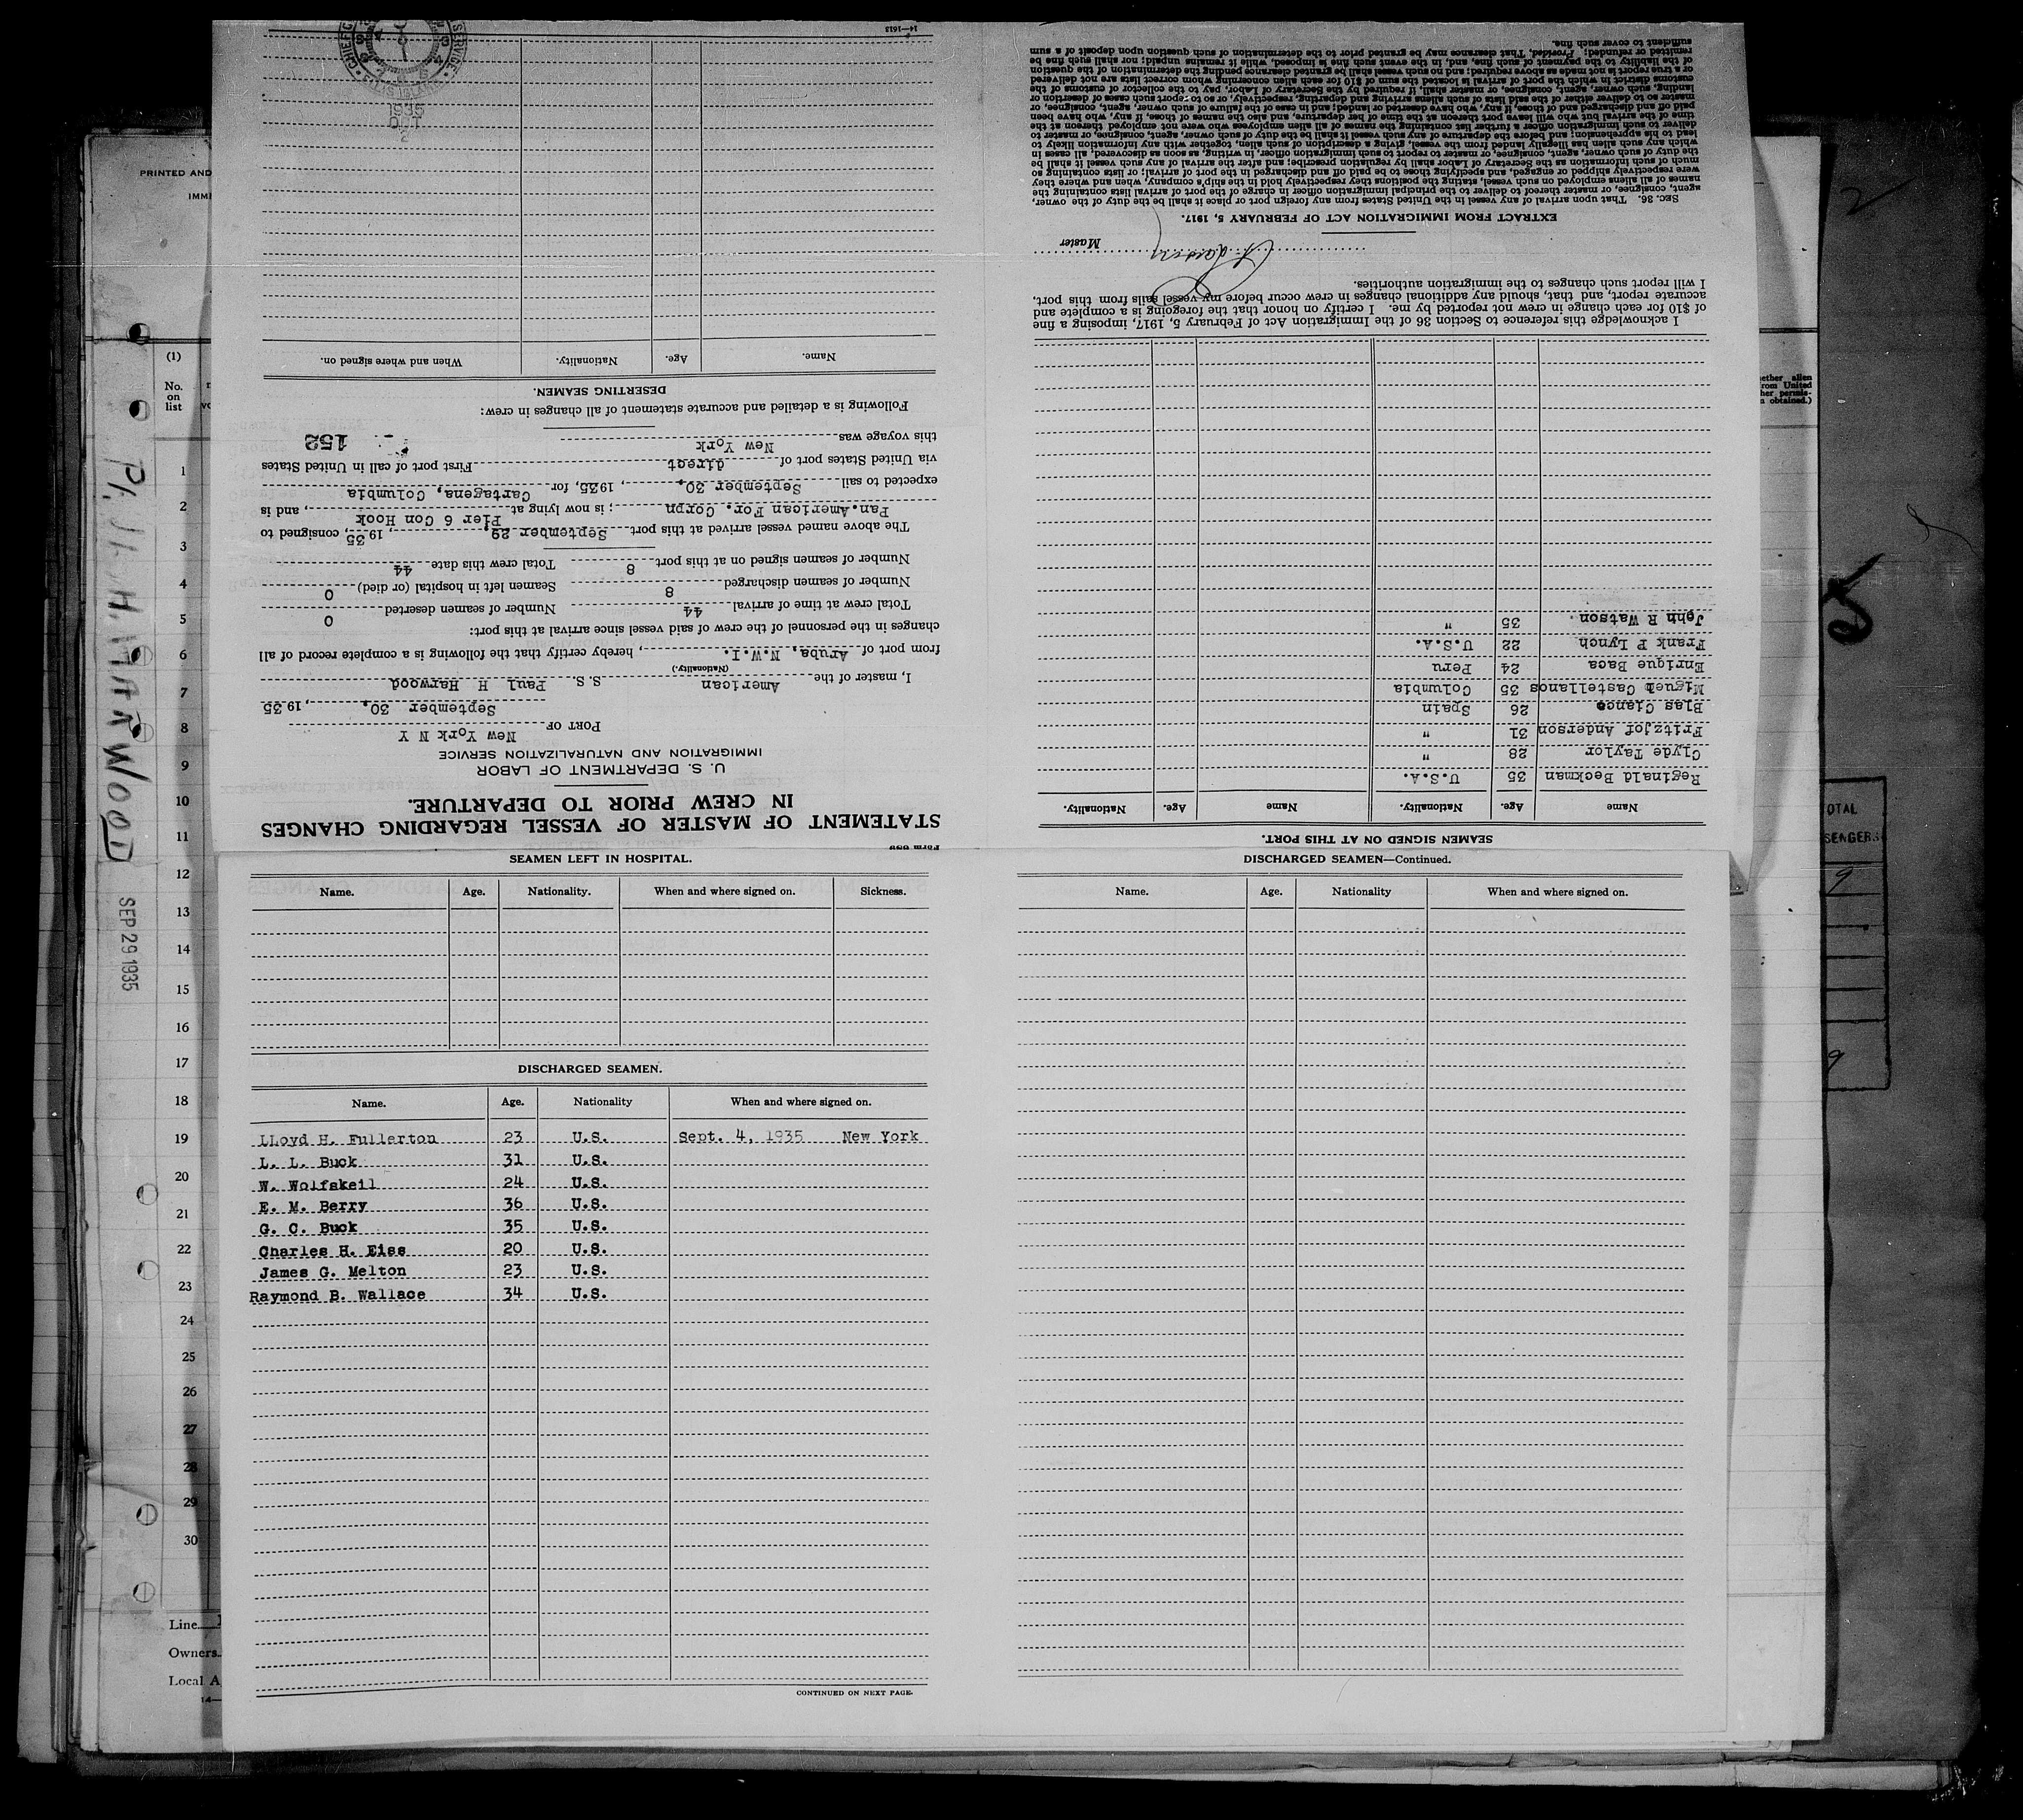 Form 689
STATEMENT OF MASTER OF VESSEL REGARDING CHANGES
IN CREW PRIOR TO DEPARTURE.
U. S. DEPARTMENT OF LABOR
IMMIGRATION AND NATURALIZATION SERVICE
PORT OF New York N Y
September 30, , 1935
I, master of the American S.S. Paul H Harwood
(Nationality.)
from port of Aruba, N.W.I. , hereby certify that the following is a complete record of all
changes in the personnel of the crew of said vessel since arrival at this port:
Total crew at time of arrival 44 Number of seamen deserted 0
Number of seamen discharged 8 Seamen left in hospital (or died) 0
Number of seamen signed on at this port 8 Total crew this date 44
The above named vessel arrived at this port September 29, , 1935, consigned to
Pan.American For. Corpn ; is now lying at Pier 6 Con Hook , and is
expected to sail September 30, , 1935, for Cartagena, Columbia
via United States port of direct First port of call in United States
this voyage was New York
152
Following is a detailed and accurate statement of all changes in crew:
DESERTING SEAMEN.
Name. Age. Nationality. When and where signed on.
1935
OCT
2
14—1613
SEAMEN SIGNED ON AT THIS PORT.
Name Age. Nationality. Name Age. Nationality.
Reginald Beckman 35 U.S.A.
Clyde Taylor 28 "
Fritzjof Anderson 31 "
Blas Ciance 26 Spain
Miguel Castellanos 35 Columbia
Enrique Baca 24 Peru
Frank P Lynch 22 U.S.A.
John R Watson 35 "
I acknowledge this reference to Section 36 of the Immigration Act of February 5, 1917, imposing a fine
of $10 for each change in crew not reported by me. I certify on honor that the foregoing is a complete and
accurate report, and that, should any additional changes in crew occur before my vessel sails from this port,
I will report such changes to the immigration authorities.
Master
EXTRACT FROM IMMIGRATION ACT OF FEBRUARY 5, 1917.
SEC. 36. That upon arrival of any vessel in the United States from any foreign port or place it shall be the duty of the owner,
agent, consignee, or master thereof to deliver to the principal immigration officer in charge of the port of arrival lists containing the
names of all aliens employed on such vessel, stating the positions they respectively hold in the ship's company, when and where they
were respectively shipped or engaged, and specifying those to be paid off and discharged in the port of arrival; or lists containing so
much of such information as the Secretary of Labor shall by regulation prescribe; and after the arrival of any such vessel it shall be
the duty of such owner, agent, consignee, or master to report to such immigration officer, in writing, as soon as discovered, all cases in
which any such alien has illegally landed from the vessel, giving a description of such alien, together with any information likely to
lead to his apprehension; and before the departure of any such vessel it shall be the duty of such owner, agent, consignee, or master to
deliver to such immigration officer a further list containing the names of all alien employees who were not employed thereon at the
time of the arrival but who will leave port thereon at the time of her departure, and also the names of those, if any, who have been
paid off and discharged and of those, if any, who have deserted or landed; and in case of the failure of such owner, agent, consignee, or
master so to deliver either of the said lists of such aliens arriving and departing, respectively, or so to report such cases of desertion or
landing, such owner, agent, consignee, or master shall, if required by the Secretary of Labor, pay to the collector of customs of the
customs district in which the port of arrival is located the sum of $10 for each alien concerning whom correct lists are not delivered
or a true report is not made as above required; and no such vessel shall be granted clearance pending the determination of the question
of the liability to the payment of such fine, and, in the event such fine is imposed, while it remains unpaid; nor shall such fine be
remitted or refunded: Provided, That clearance may be granted prior to the determination of such question upon deposit of a sum
sufficient to cover such fine.
SEAMEN LEFT IN HOSPITAL.
Name. Age. Nationality. When and where signed on. Sickness.
DISCHARGED SEAMEN.
Name. Age. Nationality When and where signed on.
LLoyd H. Fullerton 23 U.S. Sept. 4, 1935 New York
L. L. Buck 31 U.S.
W. Wolfskeil 24 U.S.
E. M. Berry 36 U.S.
G. C. Buck 35 U.S.
Charles H. Eiss 20 U.S.
James G. Melton 23 U.S.
Raymond B. Wallace 34 U.S.
CONTINUED ON NEXT PAGE.
DISCHARGED SEAMEN—Continued.
Name. Age. Nationality When and where signed on.
PRINTED AND
IMMI
(1)
No.
on
list
1
2
3
4
5
6
7
8
9
10
11
12
13
14
15
16
17
18
19
20
21
22
23
24
25
26
27
28
29
30
Line
Owners
Local A
14—
HARWOOD
SEP 29 1935
ether alien
rom United
her permis-
n obtained.)
OTAL
SENGERS
9
9
2